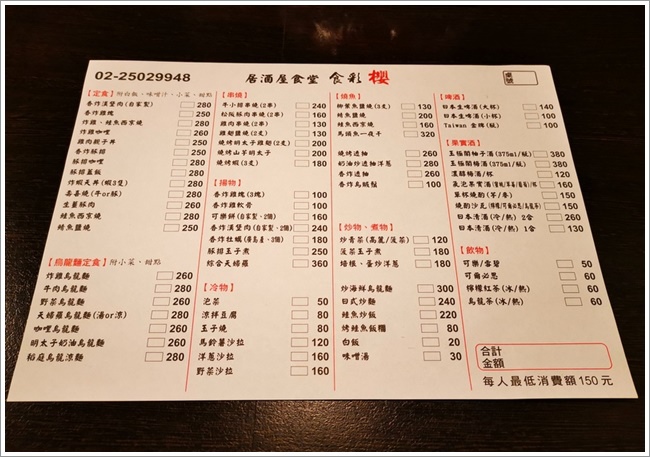 02-25029948
居酒屋食堂 食彩 櫻
桌號
【定食】附白飯、味噌汁、小菜、甜點
香炸漢堡肉(自家製) 280
香炸雞塊 250
炸雞、鮭魚西京燒 280
炸雞咖哩 260
雞肉親子丼 250
香炸豚排 250
豚排咖哩 280
豚排蓋飯 280
炸蝦天丼(蝦3隻) 280
壽喜燒(牛or豚) 280
生薑豚肉 260
鮭魚西京燒 280
鯖魚鹽燒 250
【烏龍麵定食】附小菜、甜點
炸雞烏龍麵 260
牛肉烏龍麵 280
野菜烏龍麵 260
天婦羅烏龍麵(湯or涼) 280
咖哩烏龍麵 260
明太子奶油烏龍麵 260
稻庭烏龍涼麵 280
【串燒】
牛小排串燒(2串) 240
松阪豚肉串燒(2串) 160
雞肉串燒(2串) 130
雞翅鹽燒(2支) 130
燒烤明太子雞翅(2支) 160
燒烤山芋明太子 200
燒烤蝦(3支) 180
【揚物】
香炸雞塊(3塊) 100
香炸雞軟骨 100
可樂餅(自家製、2個) 160
香炸漢堡肉(自家製、2個) 240
香炸牡蠣(廣島產、3個) 180
豚排玉子煮 250
綜合天婦羅 360
【冷物】
泡菜 50
涼拌豆腐 80
玉子燒 80
馬鈴薯沙拉 120
洋蔥沙拉 160
野菜沙拉 160
【燒魚】
柳葉魚鹽燒(3支) 130
鮭魚鹽燒 200
鮭魚西京燒 200
馬頭魚一夜干 320
燒烤透抽 200
奶油炒透抽洋蔥 280
香炸透抽 260
香炸烏賊鬚 100
【炒物、煮物】
炒青菜(高麗/菠菜) 120
菠菜玉子煮 180
培根、蛋炒洋蔥 180
炒海鮮烏龍麵 300
日式炒麵 240
鮭魚炒飯 220
烤鮭魚飯糰 80
白飯 20
味噌湯 30
【啤酒】
日本生啤酒(大杯) 140
日本生啤酒(小杯) 100
Taiwan 金牌(瓶) 100
【果實酒】
玉極閣柚子酒(375ml/瓶) 380
玉極閣梅酒(375ml/瓶) 380
濃醇梅酒/杯 120
單杯燒酌(芋/麥) 150
日本酒(冷/熱) 2合 260
日本清酒(冷/熱) 1合 130
【飲物】
可樂/雪碧 50
可爾必思 60
檸檬紅茶(冰/熱) 60
烏龍茶(冰/熱) 60
合計
金額
每人最低消費額150元